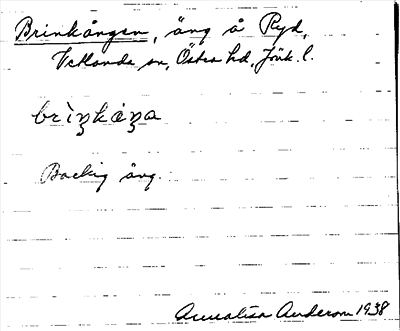 Brinkängen, äng å Ryd,
Vetlanda sn, Östra hd, Jönk. l.
brìŋkáŋa
Backig äng.
Annalisa Anderson 1938